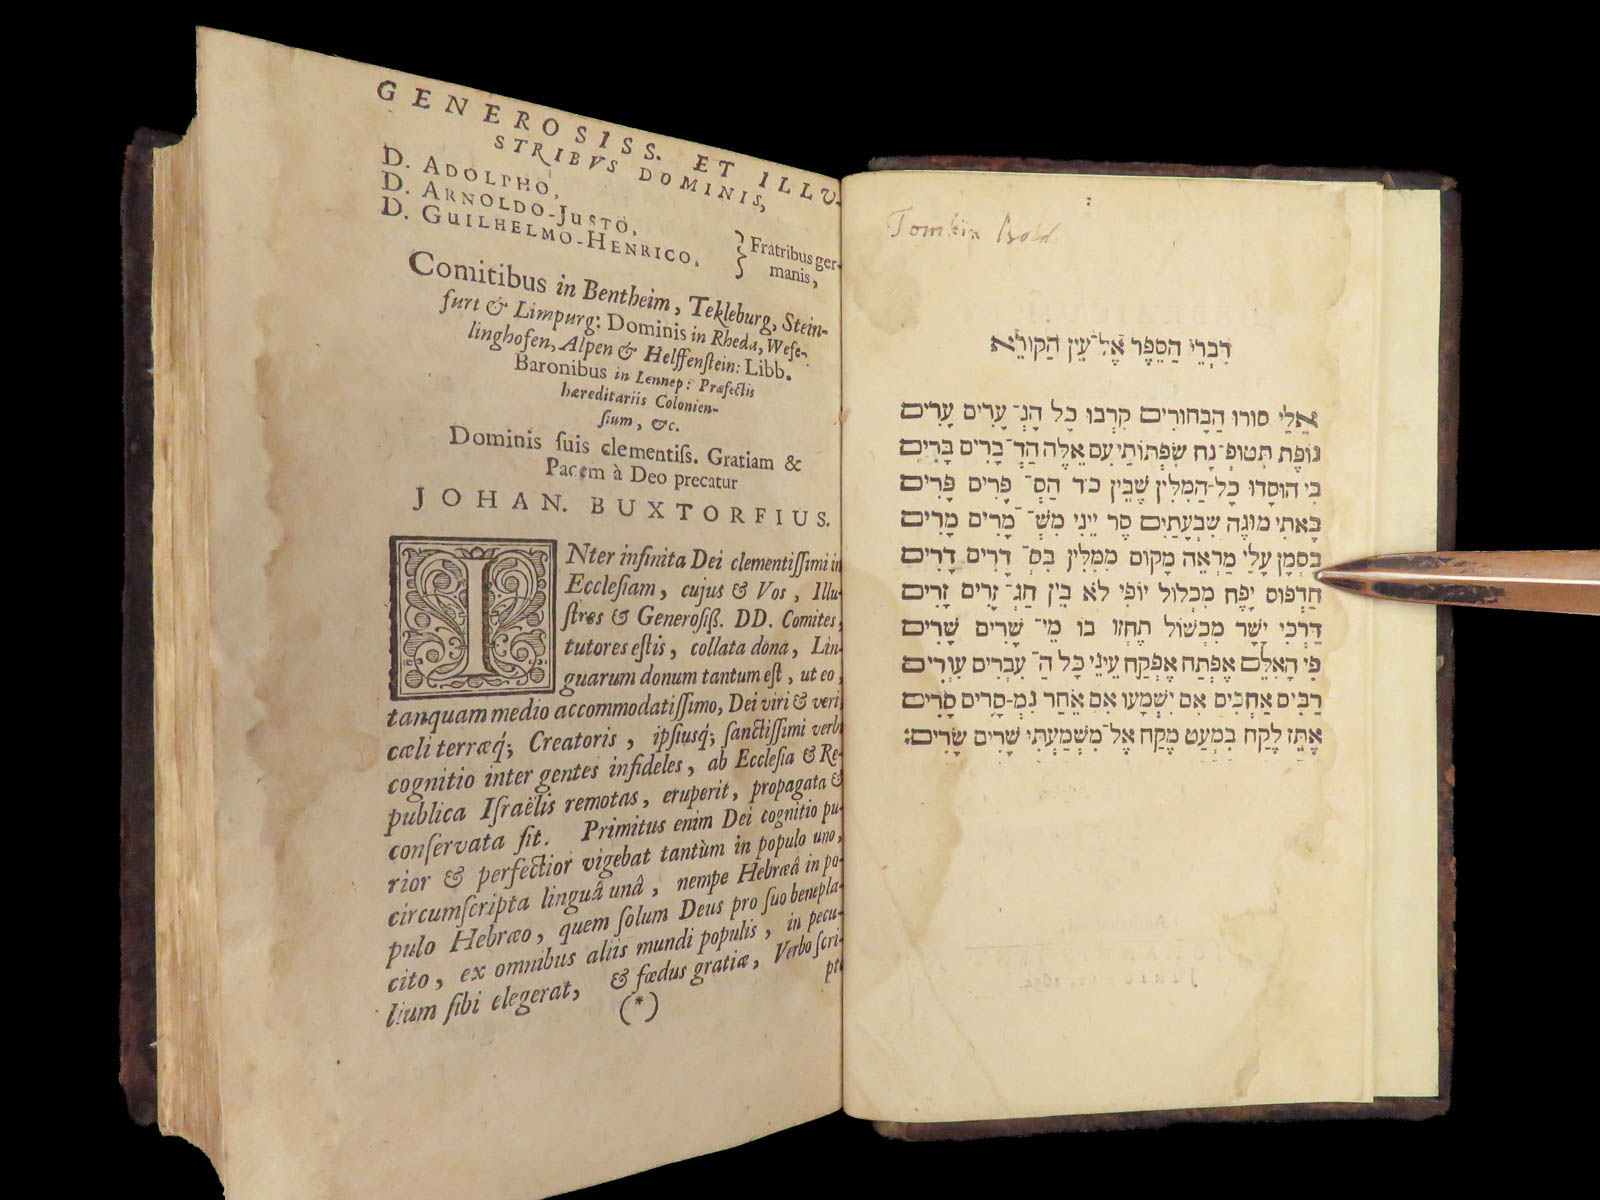 GENEROSISS. ET ILLU-
STRIBVS DOMINIS,
D. ADOLPHO,
D. ARNOLDO-JUSTO,
D. GUILHELMO-HENRICO,
Fratribus ger-
manis,
Comitibus in Bentheim, Tekleburg, Stein-
furt & Limpurg: Dominis in Rheda, Weſe-
linghofen, Alpen & Helffenſtein: Libb.
Baronibus in Lennep: Præfectis
hæreditariis Colonien-
ſium, &c.
Dominis ſuis clementiſs. Gratiam &
Pacem à Deo precatur
JOHAN. BUXTORFIUS.
INter infinita Dei clementiſſimi in
Eccleſiam, cujus & Vos, Illu-
ſtres & Generoſiß. DD. Comites,
tutores eſtis, collata dona, Lin-
guarum donum tantum eſt, ut eo,
tanquam medio accommodatiſſimo, Dei viri & veri,
cæli terræq́; Creatoris, ipſiusq́; ſanctiſſimi verbi
cognitio inter gentes infideles, ab Eccleſia & Re-
publica Iſraëlis remotas, eruperit, propagata &
conſervata ſit. Primitus enim Dei cognitio pu-
rior & perfectior vigebat tantùm in populo uno,
circumſcripta linguâ unâ, nempe Hebræâ in po-
pulo Hebræo, quem ſolum Deus pro ſuo benepla-
cito, ex omnibus aliis mundi populis, in pecu-
lium ſibi elegerat, & fœdus gratiæ, Verbo ſcri-
(*)
pto
דִּבְרֵי הַסֵּפֶר אֶל־עֵין הַקּוֹרֵא
אֵלַי סוּרוּ הַבָּחוּרִים קִרְבוּ כָּל הַנְּ־ עָרִים עָרִים
נוֹפֶת תִּטוֹפְ־נָה שִׂפְתוֹתַי עִם אֵלֶּה הַדְּ־בָרִים בָּרִים
כִּי הוּסָדוּ כָל־הַמִּלִּין שֶׁבֵּין כ״ד הַסְּ־ פָרִים פָּרִים
בָּאתִי מוּגֶה שִׁבְעָתַיִם סָר יֵינִי מִשְּׁ־מָרִים מָרִים
בְּסִמָּן עָלַי מַרְאֶה מָקוֹם מִמִּלִּין בִּסְ־ דָרִים דָּרִים
הַדְּפוּס יָפֶה מִכְלוֹל יוֹפִי לֹא בֵין חַגְ־ זָרִים זָרִים
דַּרְכִּי יָשָׁר מִכְשׁוֹל תֶּחְזוּ בוֹ מֵי־ שָׁרִים שָׁרִים
פִּי הָאִלֵּם אֶפְתַּח אֶפְקַח עֵינֵי כָּל הָ־ עִבְרִים עִוְרִים
רַבִּים אַחְכִּים אִם יִשְׁמָעוּ אִם אֵחַר נִמְ־סָרִים סָרִים
אֶתֵּן לֶקַח בִּמְעַט מִקָּח אֶל־מִשְׁמַעְתִּי שָׁרִים שָׂרִים׃